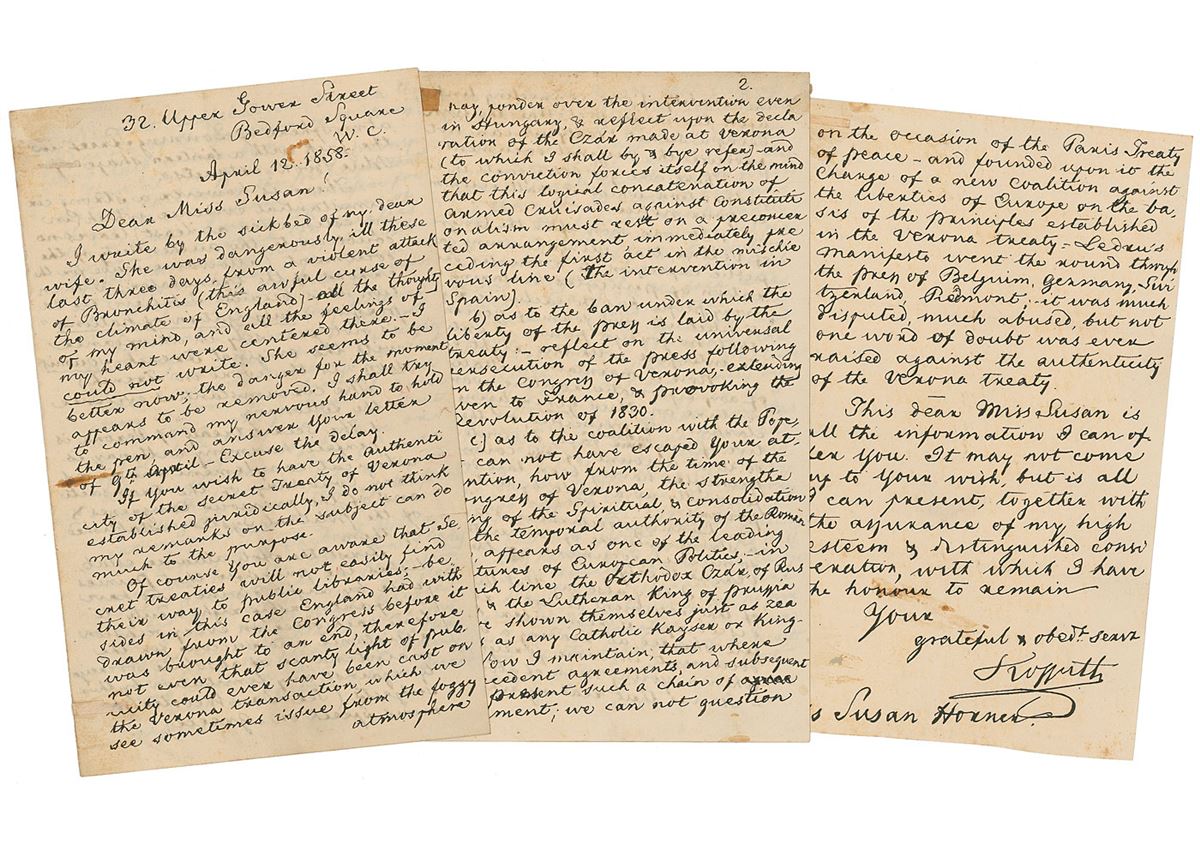 32. Upper Gower Street
Bedford Square
W. C.
April 12. 1858.
Dear Miss Susan!
I write by the sickbed of my dear
wife. She was dangerously ill these
last three days, from a violent attack
of Bronchitis (this awful curse of
the climate of England) - all the thoughts
of my mind, and all the feelings of
my heart were centered there. - I
could not write. She seems to be
better now; the danger for the moment
appears to be removed. I shall try
to command my nervous hand to hold
the pen and answer your letter
of 9th April - Excuse the delay.
If you wish to have the Authenti
city of the secret Treaty of Verona
established juridically, I do not think
my remarks on the subject can do
much to the purpose.
Of course you are aware that se
cret treaties will not easily find
their way to public libraries; be,
sides in this case England had with
drawn from the Congress before it
was brought to an end, therefore
not even that scanty light of pub,
licity could ever have been cast on
the Verona transaction, which we
see sometimes issue from the foggy
atmosphere
2.
may ponder over the intervention even
in Hungary, & reflect upon the decla
ration of the Czár made at Verona
(to which I shall by & bye refer) - and
the conviction forces itself on the mind
that this logical concatenation of
armed Cruisades against Constituti
onalism must rest on a preconcer
ted arrangement immediately pre
ceding the first act in the mischie
vous line (the intervention in
Spain).
b) as to the ban under which the
liberty of the press is laid by the
treaty: - reflect on the universal
persecution of the press following
on the Congress of Verona, - extending
even to France, & provoking the
Revolution of 1830.
c) as to the coalition with the Pope,
can not have escaped your at,
ntion, how from the time of the
ngress of Verona, the strengthe
ng of the Spiritual, & consolidation
the temporal authority of the Roman
appears as one of the leading
tures of European Politics, - in
ch line the Orthodox Czár, of Rus
& the Lutheran King of Prussia
ve shown themselves just as zea
s as any Catholic Kayser or King -
Now I maintain, that where
cedent agreements, and subsequent
present such a chain of
ment; we can not question
on the occasion of the Paris Treaty
of peace - and founded upon it the
Charge of a new Coalition against
the liberties of Europe on the ba,
sis of the principles established
in the Verona treaty - Ledru's
Manifesto went the round through
the press of Belgium, Germany, Swi
tzerland, Piedmont. - it was much
disputed, much abused, but not
one word of doubt was ever
raised against the authenticity
of the Verona treaty.
This dear Miss Susan is
all the information I can of
fer you. It may not come
up to your wish, but is all
I can present, together with
the assurance of my high
esteem & distinguished consi
deration, with which I have
the honour to remain
Your
grateful & obedt. servt
Kossuth
s Susan Horner.